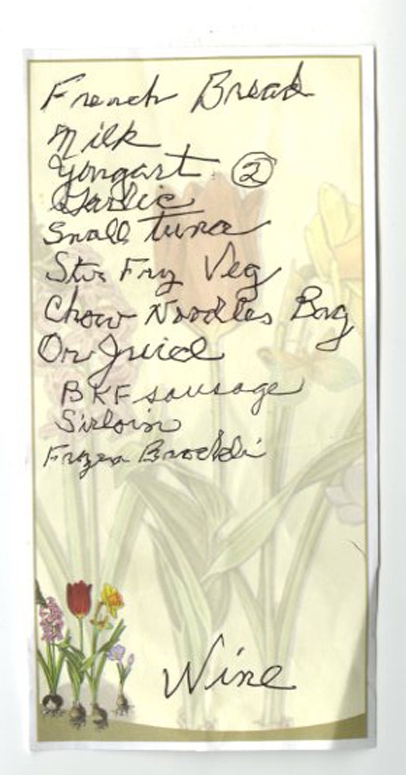 French Bread
Milk
Yongart ②
Garlic
Small tuna
Stir Fry Veg
Chow Noodles Bag
Or Juice
BKF sausage
Sirloin
Frozen Brockli
Wine